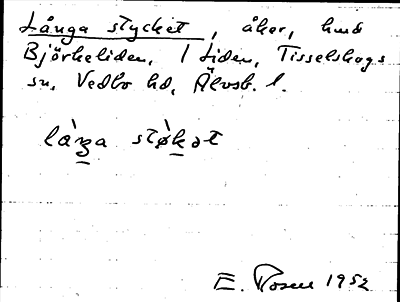 Långa stycket, åker, hmd
Björkeliden, 1 Liden, Tisselskogs
sn, Vedbo hd, Älvsb. l.
E. Rosell 1952